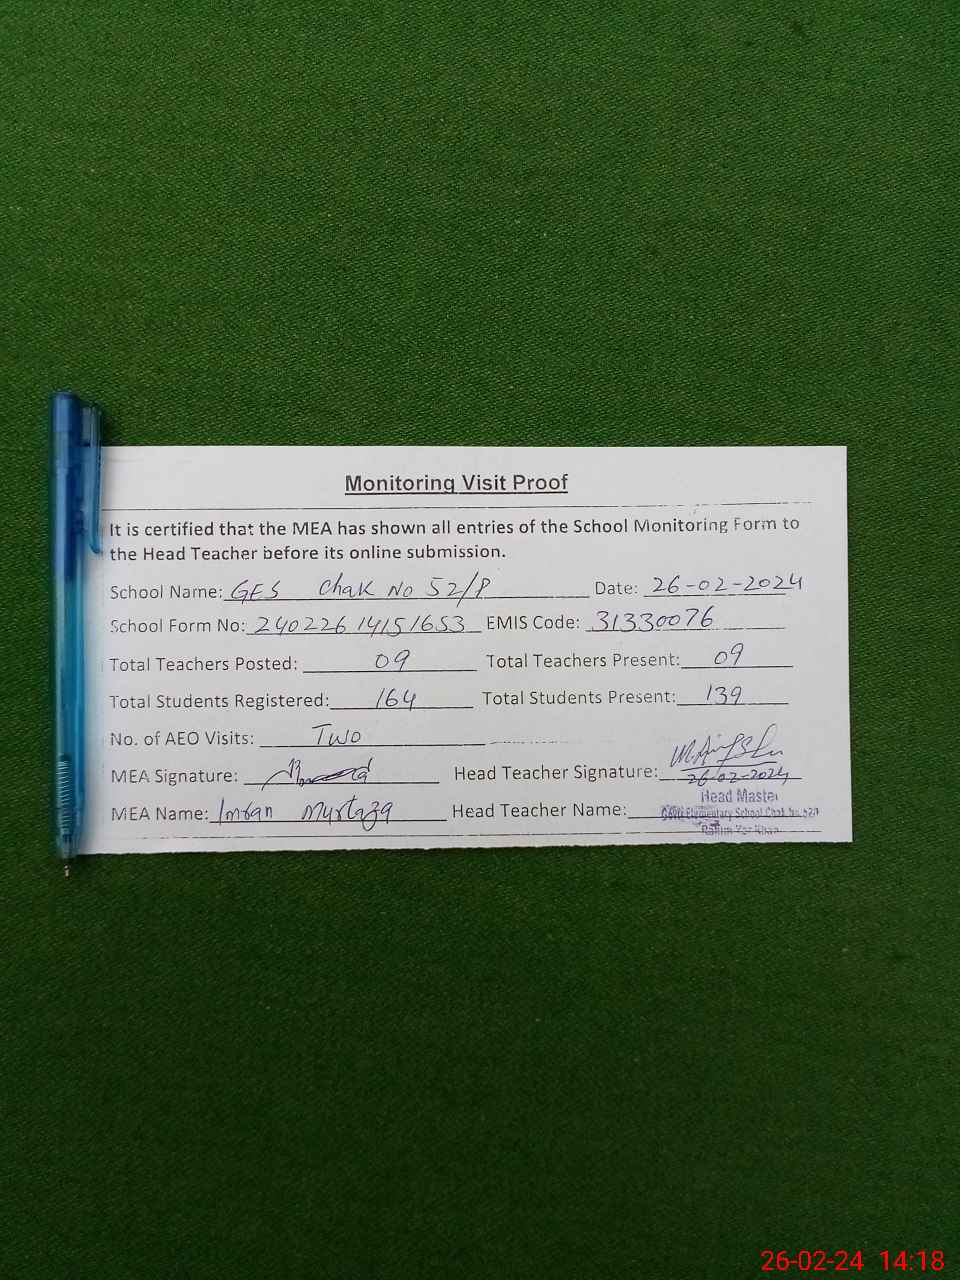 Monitoring Visit Proof
It is certified that the MEA has shown all entries of the School Monitoring Form to
the Head Teacher before its online submission.
School Name: GES Chak No 52/P Date: 26-02-2024
School Form No: 24022614151653 EMIS Code: 31330076
Total Teachers Posted: 09 Total Teachers Present: 09
Total Students Registered: 164 Total Students Present: 139
No. of AEO Visits: Two
MEA Signature: Head Teacher Signature:
26-02-2024
MEA Name: Imran Murtaza Head Teacher Name:
Head Master
Elementary School Chak No. 52/P
Rahim Yar Khan
26-02-24 14:18